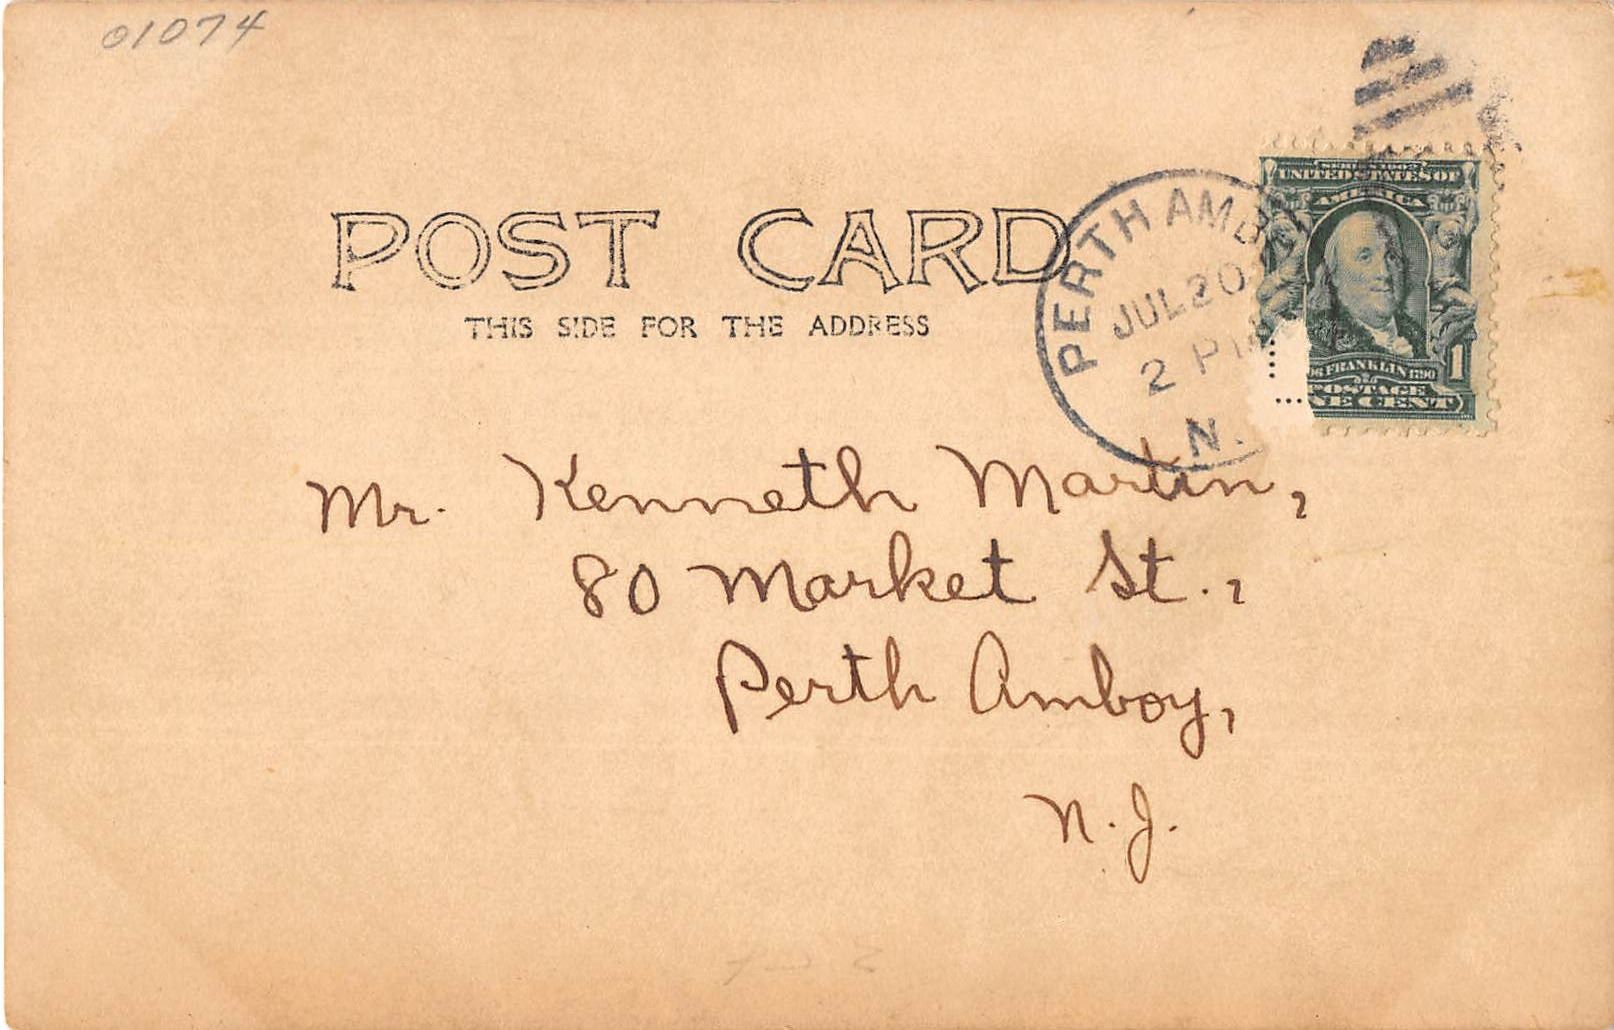 01074
POST CARD
THIS SIDE FOR THE ADDRESS
PERTH AMBOY
JUL 20
2 PM
N.
SERIES 1902
UNITED STATES OF
AMERICA
FRANKLIN 1790
POSTAGE 1
NE CENT
Mr. Kenneth Martin,
80 Market St.,
Perth Amboy,
N.J.